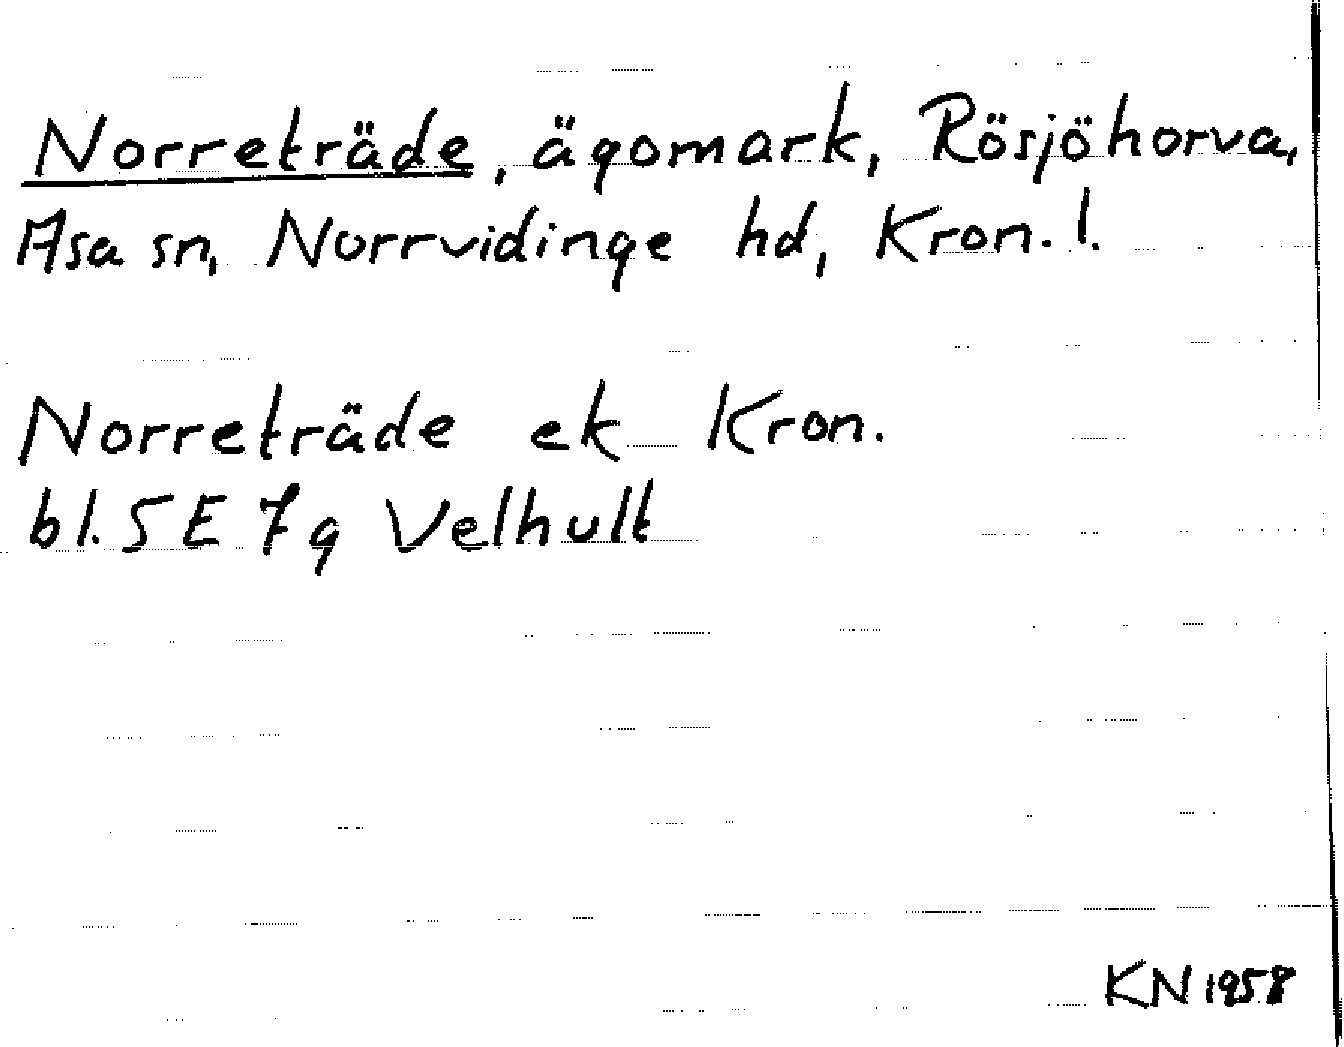 Norreträde, ägomark, Rösjöhorva,
Asa sn, Norrvidinge hd, Kron. l.
Norreträde ek Kron.
bl. 5 E 7 g Velhult
KN 1958